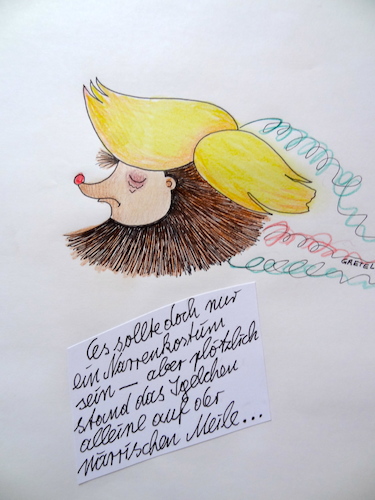 GRETEL
Es sollte doch nur
ein Narrenkostüm
sein – aber plötzlich
stand das Igelchen
alleine auf der
närrischen Meile...